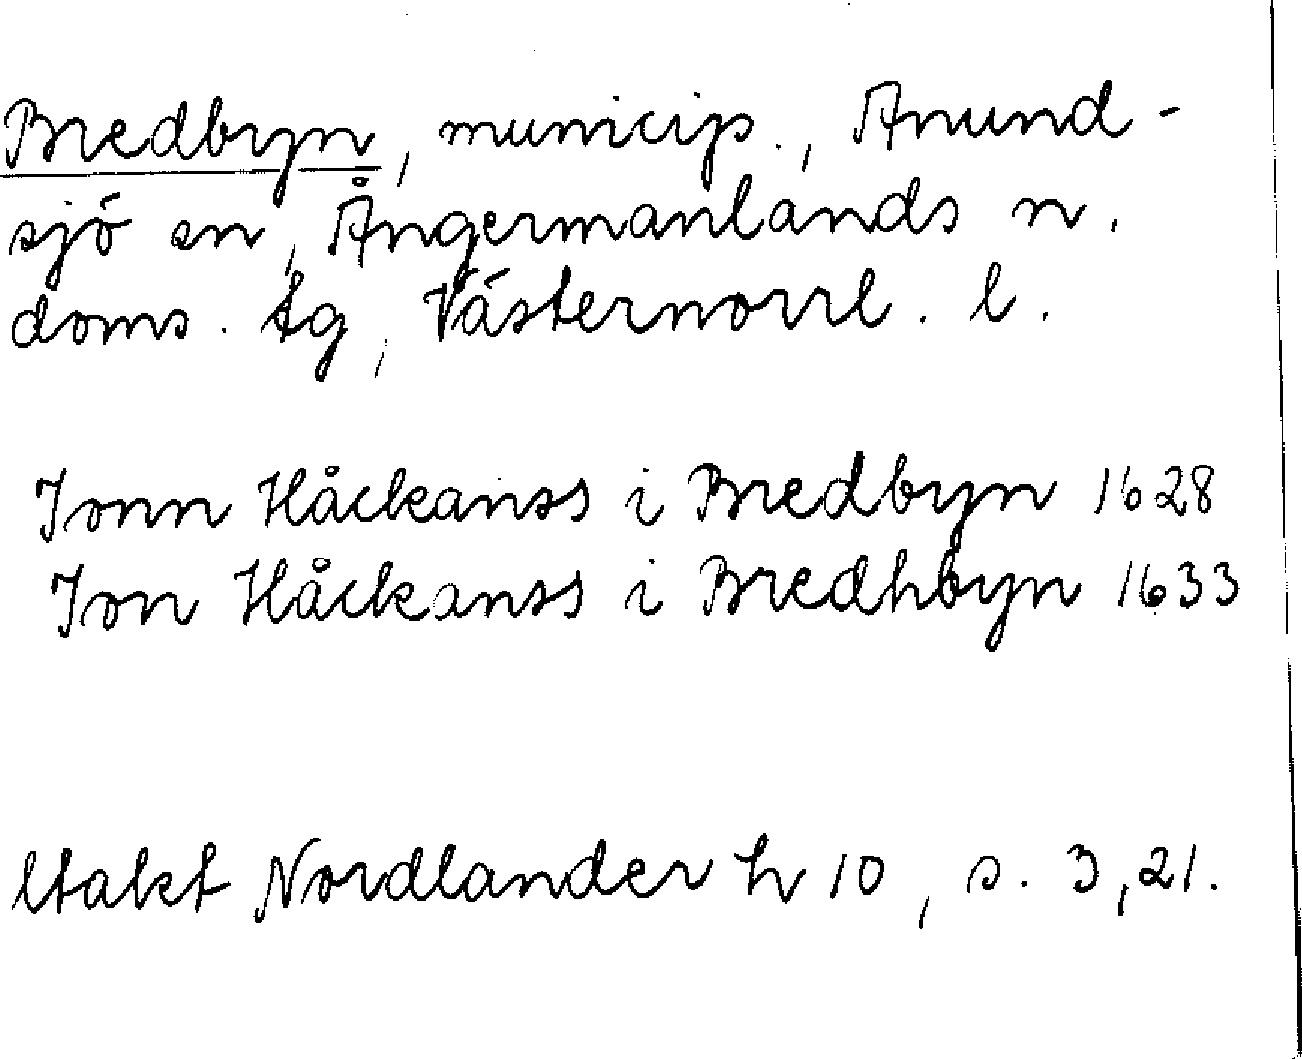 Bredbyn, municip., Anund-
sjö sn, Ångermanlands n.
doms. tg, Västernorrl. l.
Jonn Håckanss i Bredbyn 1628
Jon Håckanss i Bredhbyn 1633
Utakt Nordlander h 10, s. 3, 21.